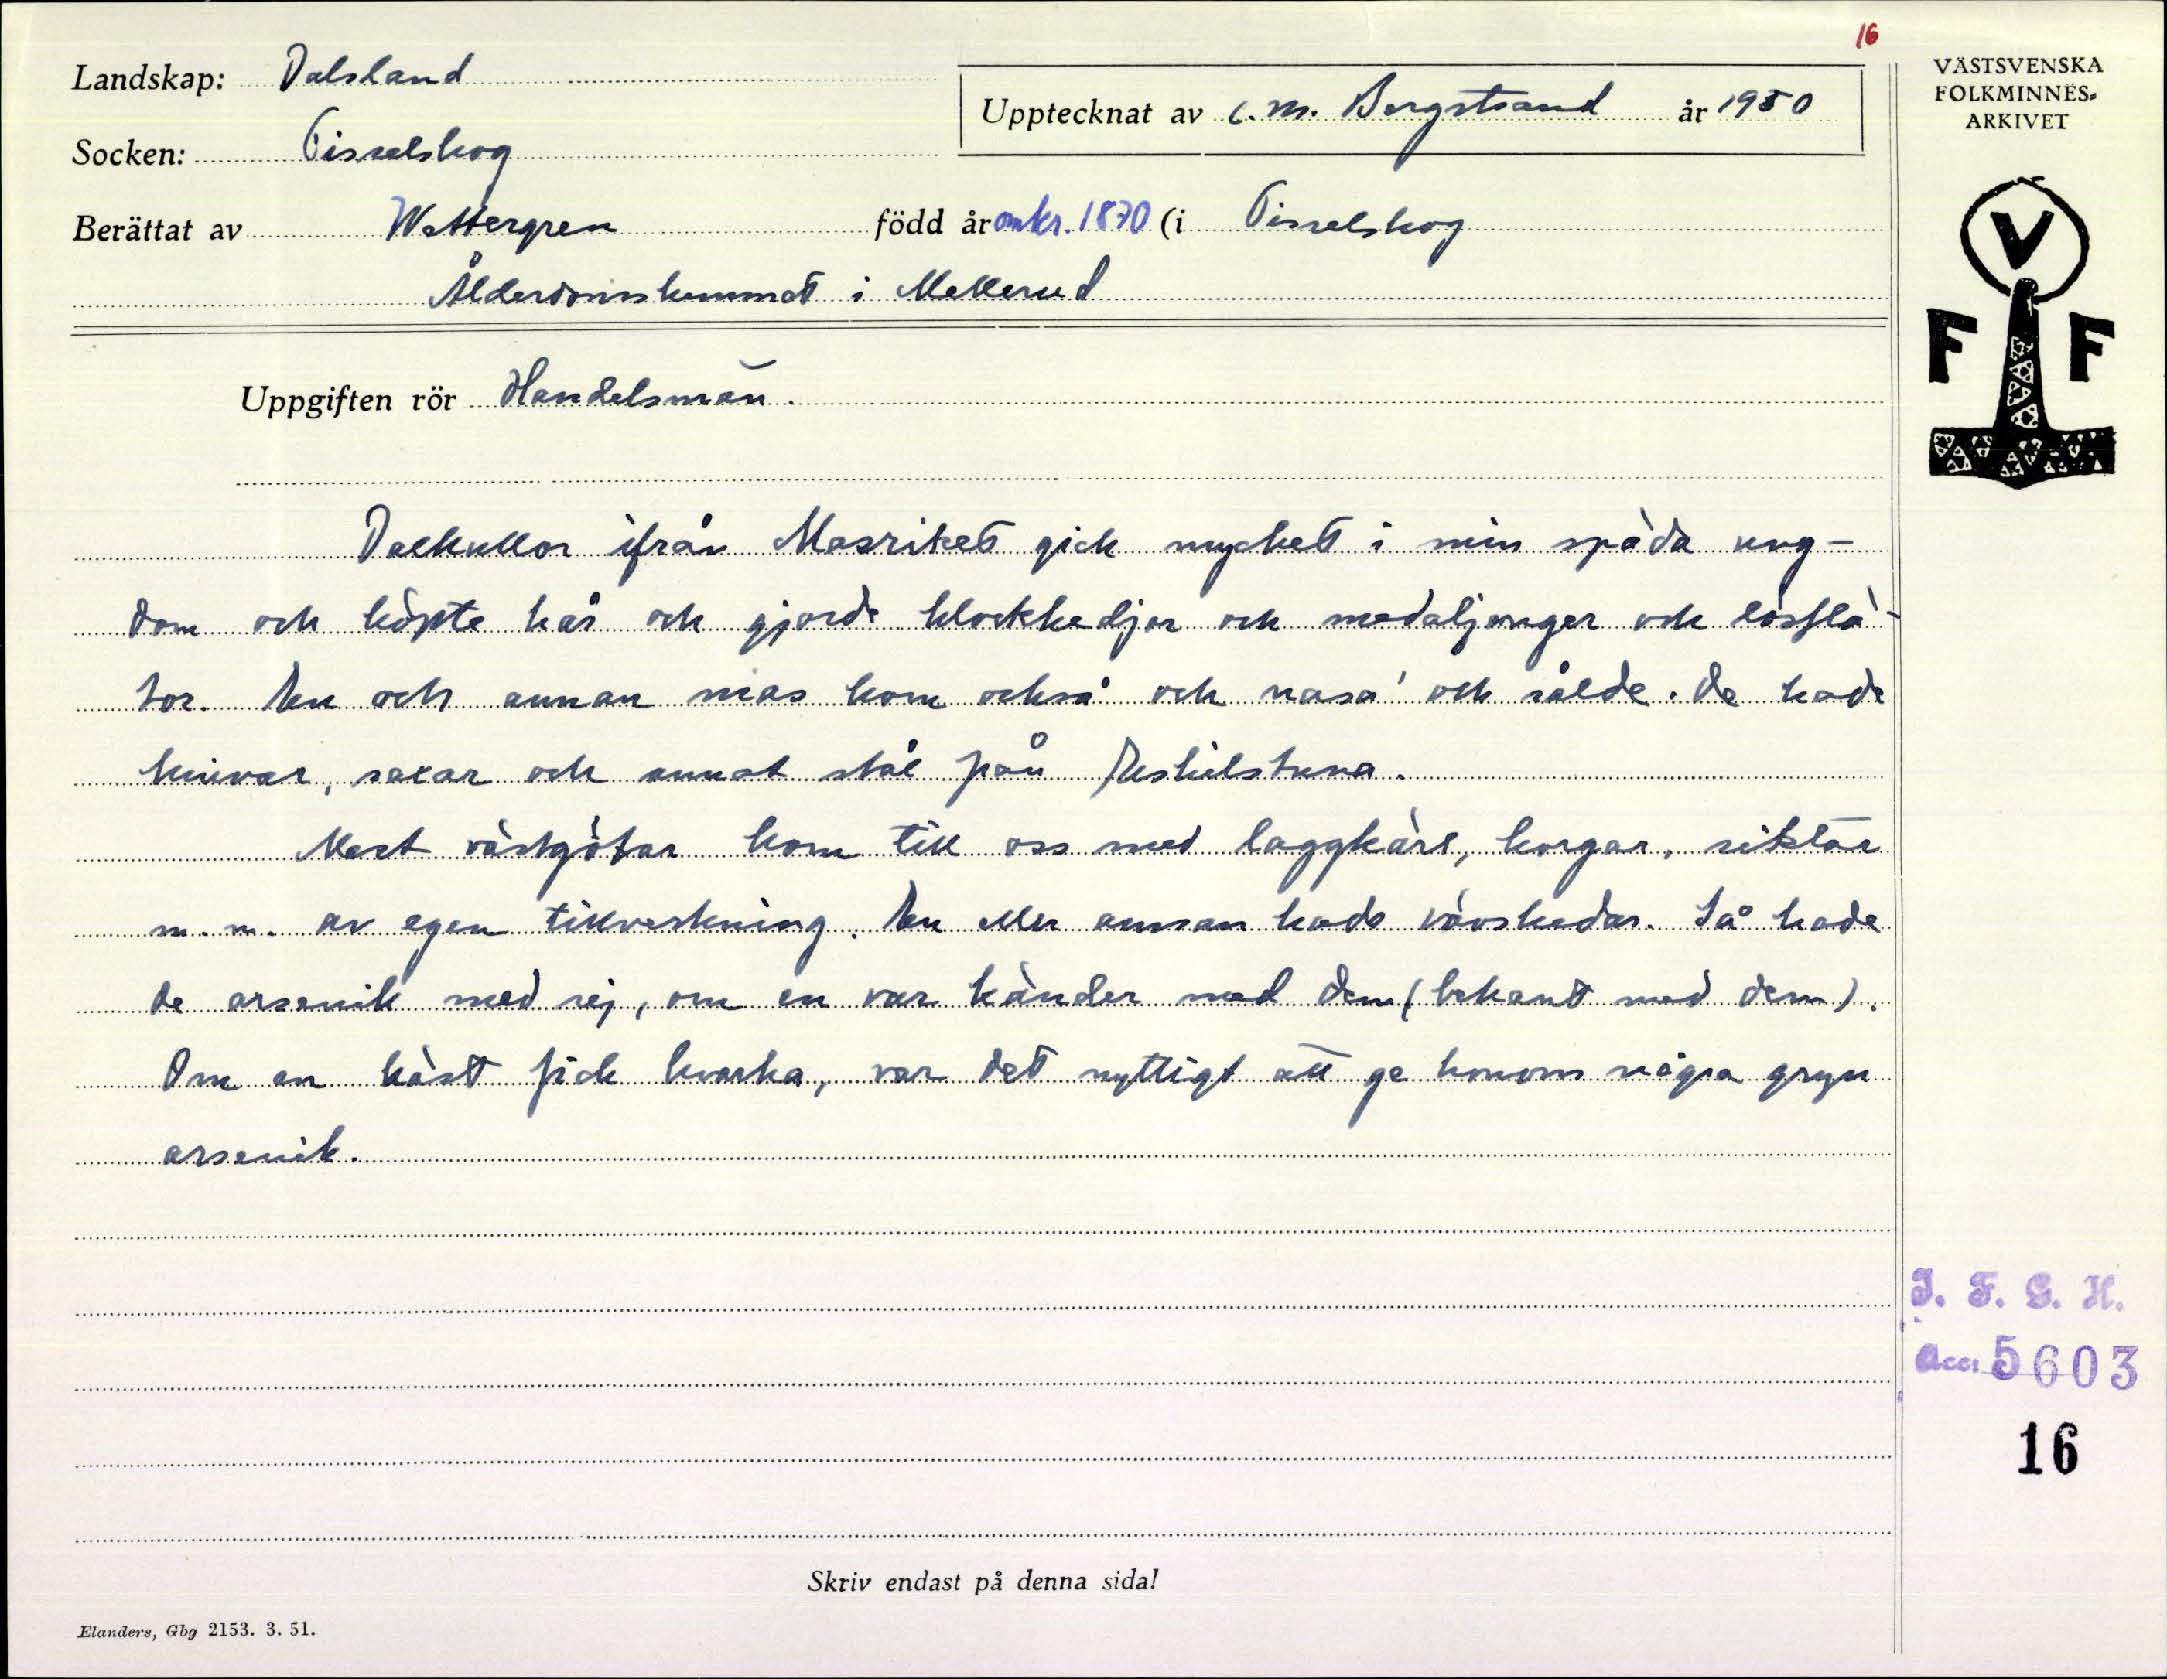 16
Landskap: Dalsland
Upptecknat av C. M. Bergstrand år 1950
VÄSTSVENSKA
FOLKMINNES-
ARKIVET
Socken: Tisselskog
Berättat av Wettergren född år omkr. 1870 (i Tisselskog
Ålderdomshemmet i Mellerud
V
F F
Uppgiften rör Handelsmän.
Dalkullor ifrån Masriket gick mycket i min späda ung-
dom och köpte hår och gjorde klockkedjor och medaljonger och lösflä-
tor. En och annan mas kom också och nasa' och sålde. De hade
knivar, saxar och annat stål från Eskilstuna.
Mest västgötar kom till oss med laggkärl, korgar, siktar
m. m. av egen tillverkning. En eller annan hade vävskedar. Så hade
de arsenik med sej, om en var känder med dem (bekant med dem).
Om en häst fick kvarka, var det nyttigt att ge honom några gryn
arsenik.
I. F. G. H.
Acc. 5603
16
Skriv endast på denna sida!
Elanders, Gbg 2153. 3. 51.